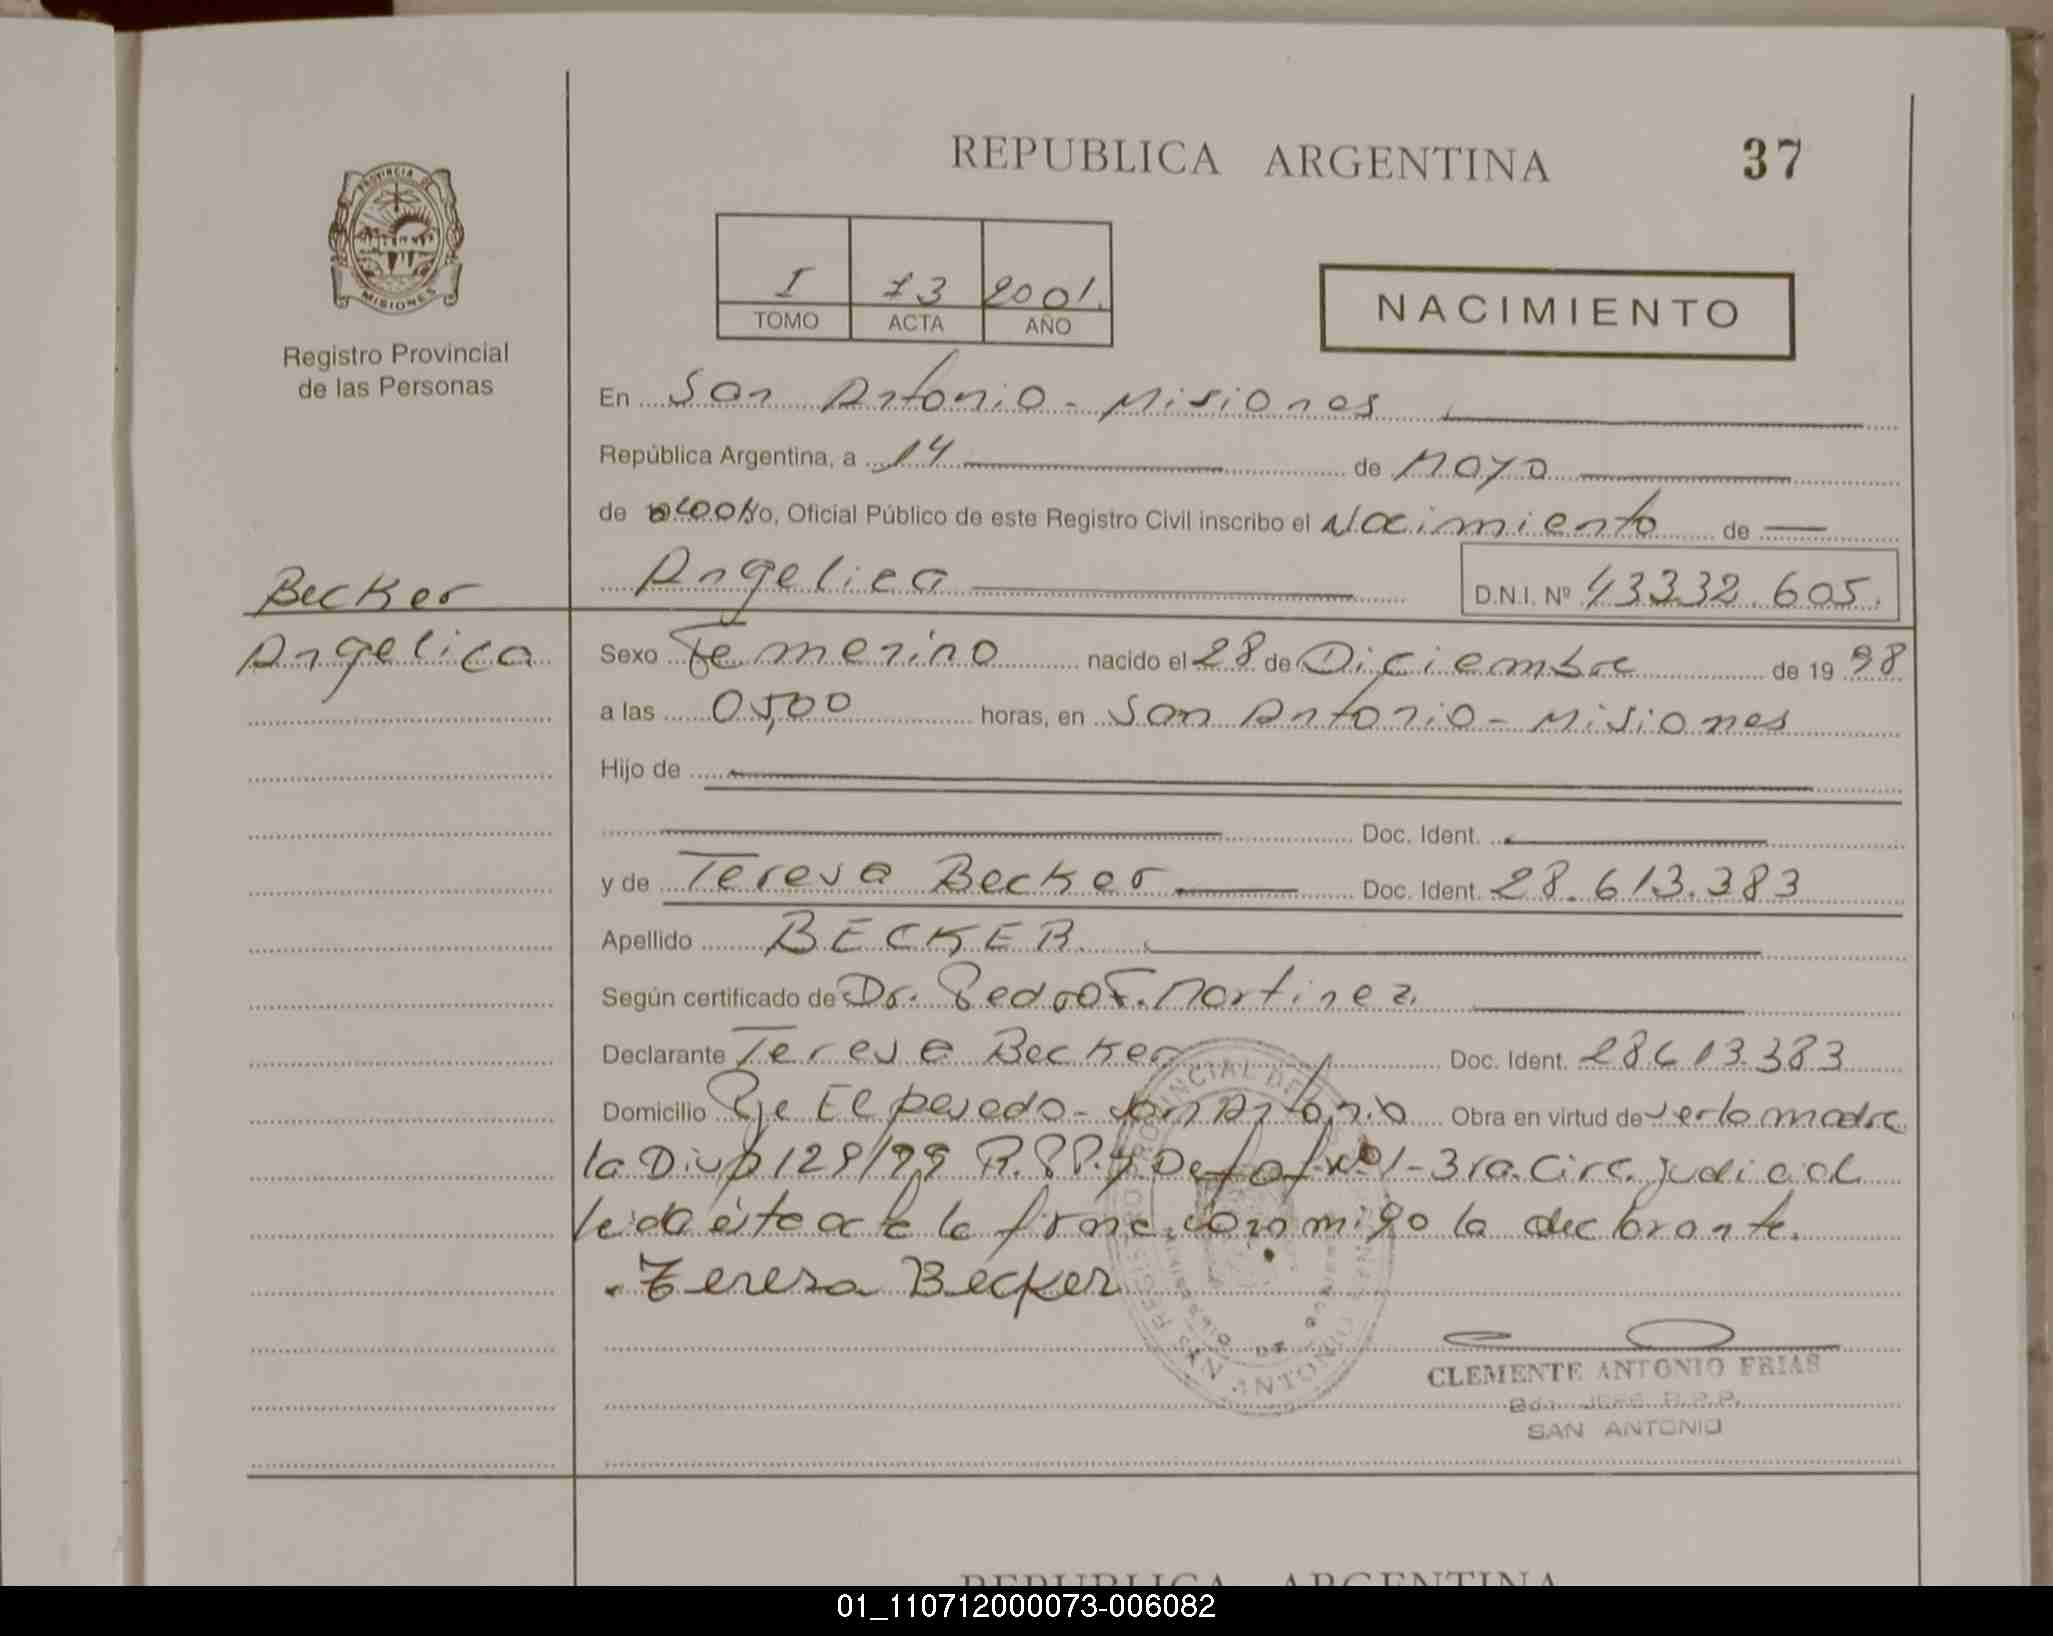 REPUBLICA ARGENTINA
37
PROVINCIA DE
MISIONES
Registro Provincial
de las Personas
I 73 2001.
TOMO ACTA AÑO
NACIMIENTO
En San Antonio - Misiones
República Argentina, a 14 de Mayo
de 2001 Yo, Oficial Público de este Registro Civil inscribo el Nacimiento de
Angelica
D.N.I. Nº 43332.605.
Becker
Angelica
Sexo Femenino nacido el 28 de Diciembre de 19 98
a las 05,00 horas, en San Antonio - Misiones
Hijo de
Doc. Ident.
y de Teresa Becker Doc. Ident. 28.613.383
Apellido BECKER
Según certificado de Dr. Pedro F. Martinez.
Declarante Teresa Becker Doc. Ident. 28613.383
Domicilio Pje El - San Antonio Obra en virtud de ser la madre
la 129/99 R.P.P. y Def of Nº 1 - 3ra. Circ. judicial
leida ésta acta la firma, conmigo la declarante.
Teresa Becker
CLEMENTE ANTONIO FRIAS
JEFE R.P.P.
SAN ANTONIO
REPUBLICA ARGENTINA
01_110712000073-006082